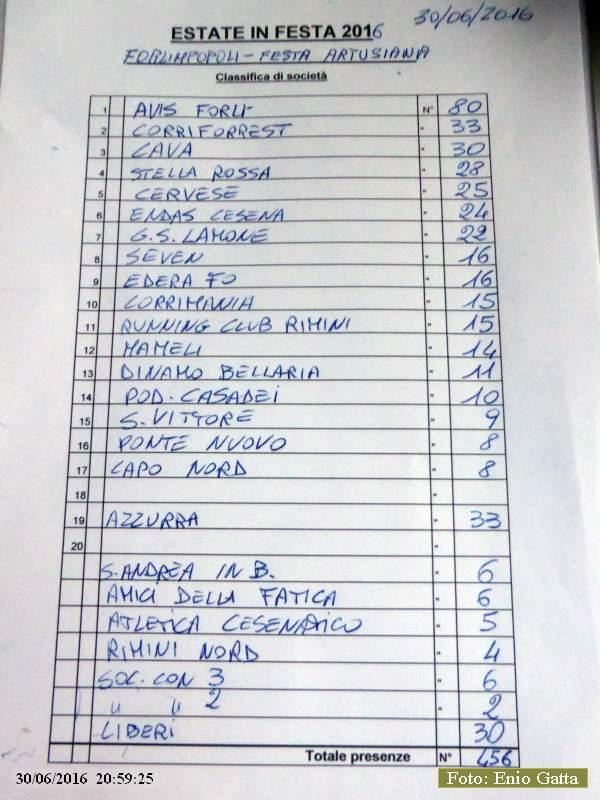 30/06/2016
ESTATE IN FESTA 2016
FORLIMPOPOLI - FESTA ARTUSIANA
Classifica di società
1 AVIS FORLI' N° 80
2 CORRIFORREST " 33
3 CAVA " 30
4 STELLA ROSSA " 28
5 CERVESE " 25
6 ENDAS CESENA " 24
7 G.S. LAMONE " 22
8 SEVEN " 16
9 EDERA FO " 16
10 CORRIMANIA " 15
11 RUNNING CLUB RIMINI " 15
12 MAMELI " 14
13 DINAMO BELLARIA " 11
14 POD. CASADEI " 10
15 S. VITTORE " 9
16 PONTE NUOVO " 8
17 CAPO NORD " 8
18 "
19 AZZURRA " 33
20 "
S. ANDREA IN B. " 6
AMICI DELLA FATICA " 6
ATLETICA CESENATICO " 5
RIMINI NORD " 4
SOC. CON 3 " 6
" " 2 " 2
LIBERI " 30
Totale presenze N° 456
30/06/2016 20:59:25
Foto: Enio Gatta